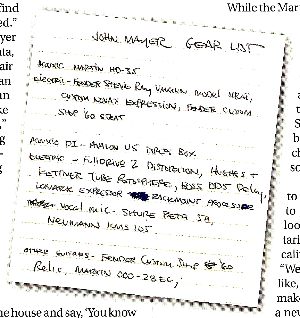 While the Mar
find
ed."
yer
ata,
air
an
an
ke
"
JOHN MAYER GEAR LIST
ACOUSTIC MARTIN HD-35
ELECTRIC - FENDER STEVIE RAY VAUGHN MODEL
CUSTOM NOVAX EXPRESSION, FENDER CUSTOM
SHOP '60 STRAT
ACOUSTIC DI - AVALON U5 DIRECT BOX
ELECTRIC - FULLDRIVE 2 DISTORTION, HUGHES +
KETTNER TUBE ROTOSPHERE, BOSS DD5 DELAY,
EXPRESSOR RACKMOUNT PROCESSOR
VOCAL MIC - SHURE BETA 58,
NEUMANN KMS 105.
OTHER GUITARS - FENDER CUSTOM SHOP '60
RELIC, MARTIN 000-28EC,
to
to
loo
tarl
cali
"We
like,
mak
a nev
he house and say, 'You know